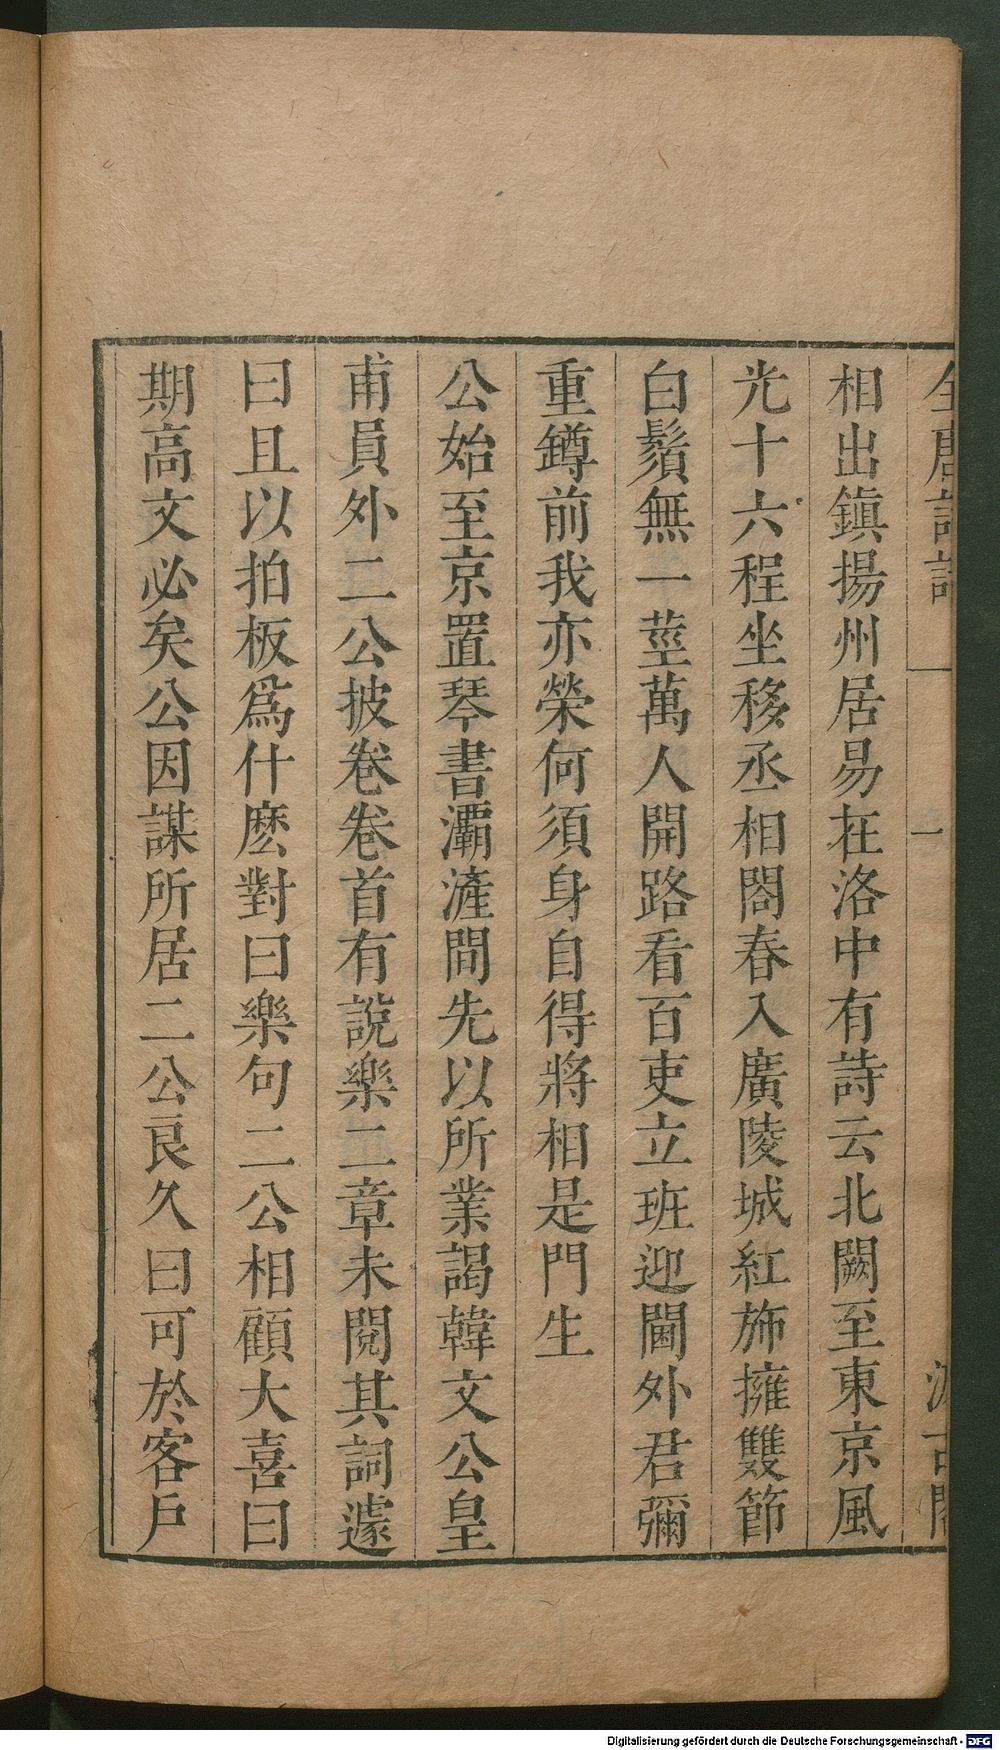 全唐詩話 一 一 汲古閣
相出鎮揚州居易在洛中有詩云北闕至東京風
光十六程坐移丞相閤春入廣陵城紅斾擁雙節
白鬚無一莖萬人開路看百吏立班迎閫外君彌
重鐏前我亦榮何須身自得將相是門生
公始至京置琴書灞滻間先以所業謁韓文公皇
甫員外二公披卷卷首有說樂二章未閱其詞遽
曰且以拍板爲什麽對曰樂句二公相顧大喜曰
期高文必矣公因謀所居二公良久曰可於客戶
Digitalisierung gefördert durch die Deutsche Forschungsgemeinschaft - DFG